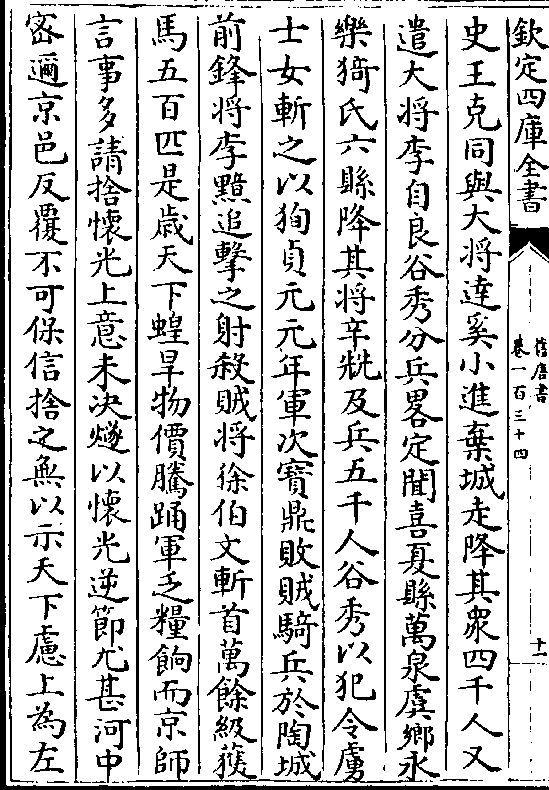 欽定四庫全書
舊唐書
卷一百三十四
十一
史王克同與大將達奚小進棄城走降其衆四千人又
遣大將李自良谷秀分兵畧定聞喜夏縣萬泉虞鄉永
樂猗氏六縣降其將辛兟及兵五千人谷秀以犯令虜
士女斬之以狥貞元元年軍次寳鼎敗賊騎兵於陶城
前鋒將李黯追擊之射殺賊將徐伯文斬首萬餘級獲
馬五百匹是歲天下蝗旱物價騰踊軍乏糧餉而京師
言事多請捨懷光上意未决燧以懷光逆節尤甚河中
宻邇京邑反覆不可保信捨之無以示天下慮上為左